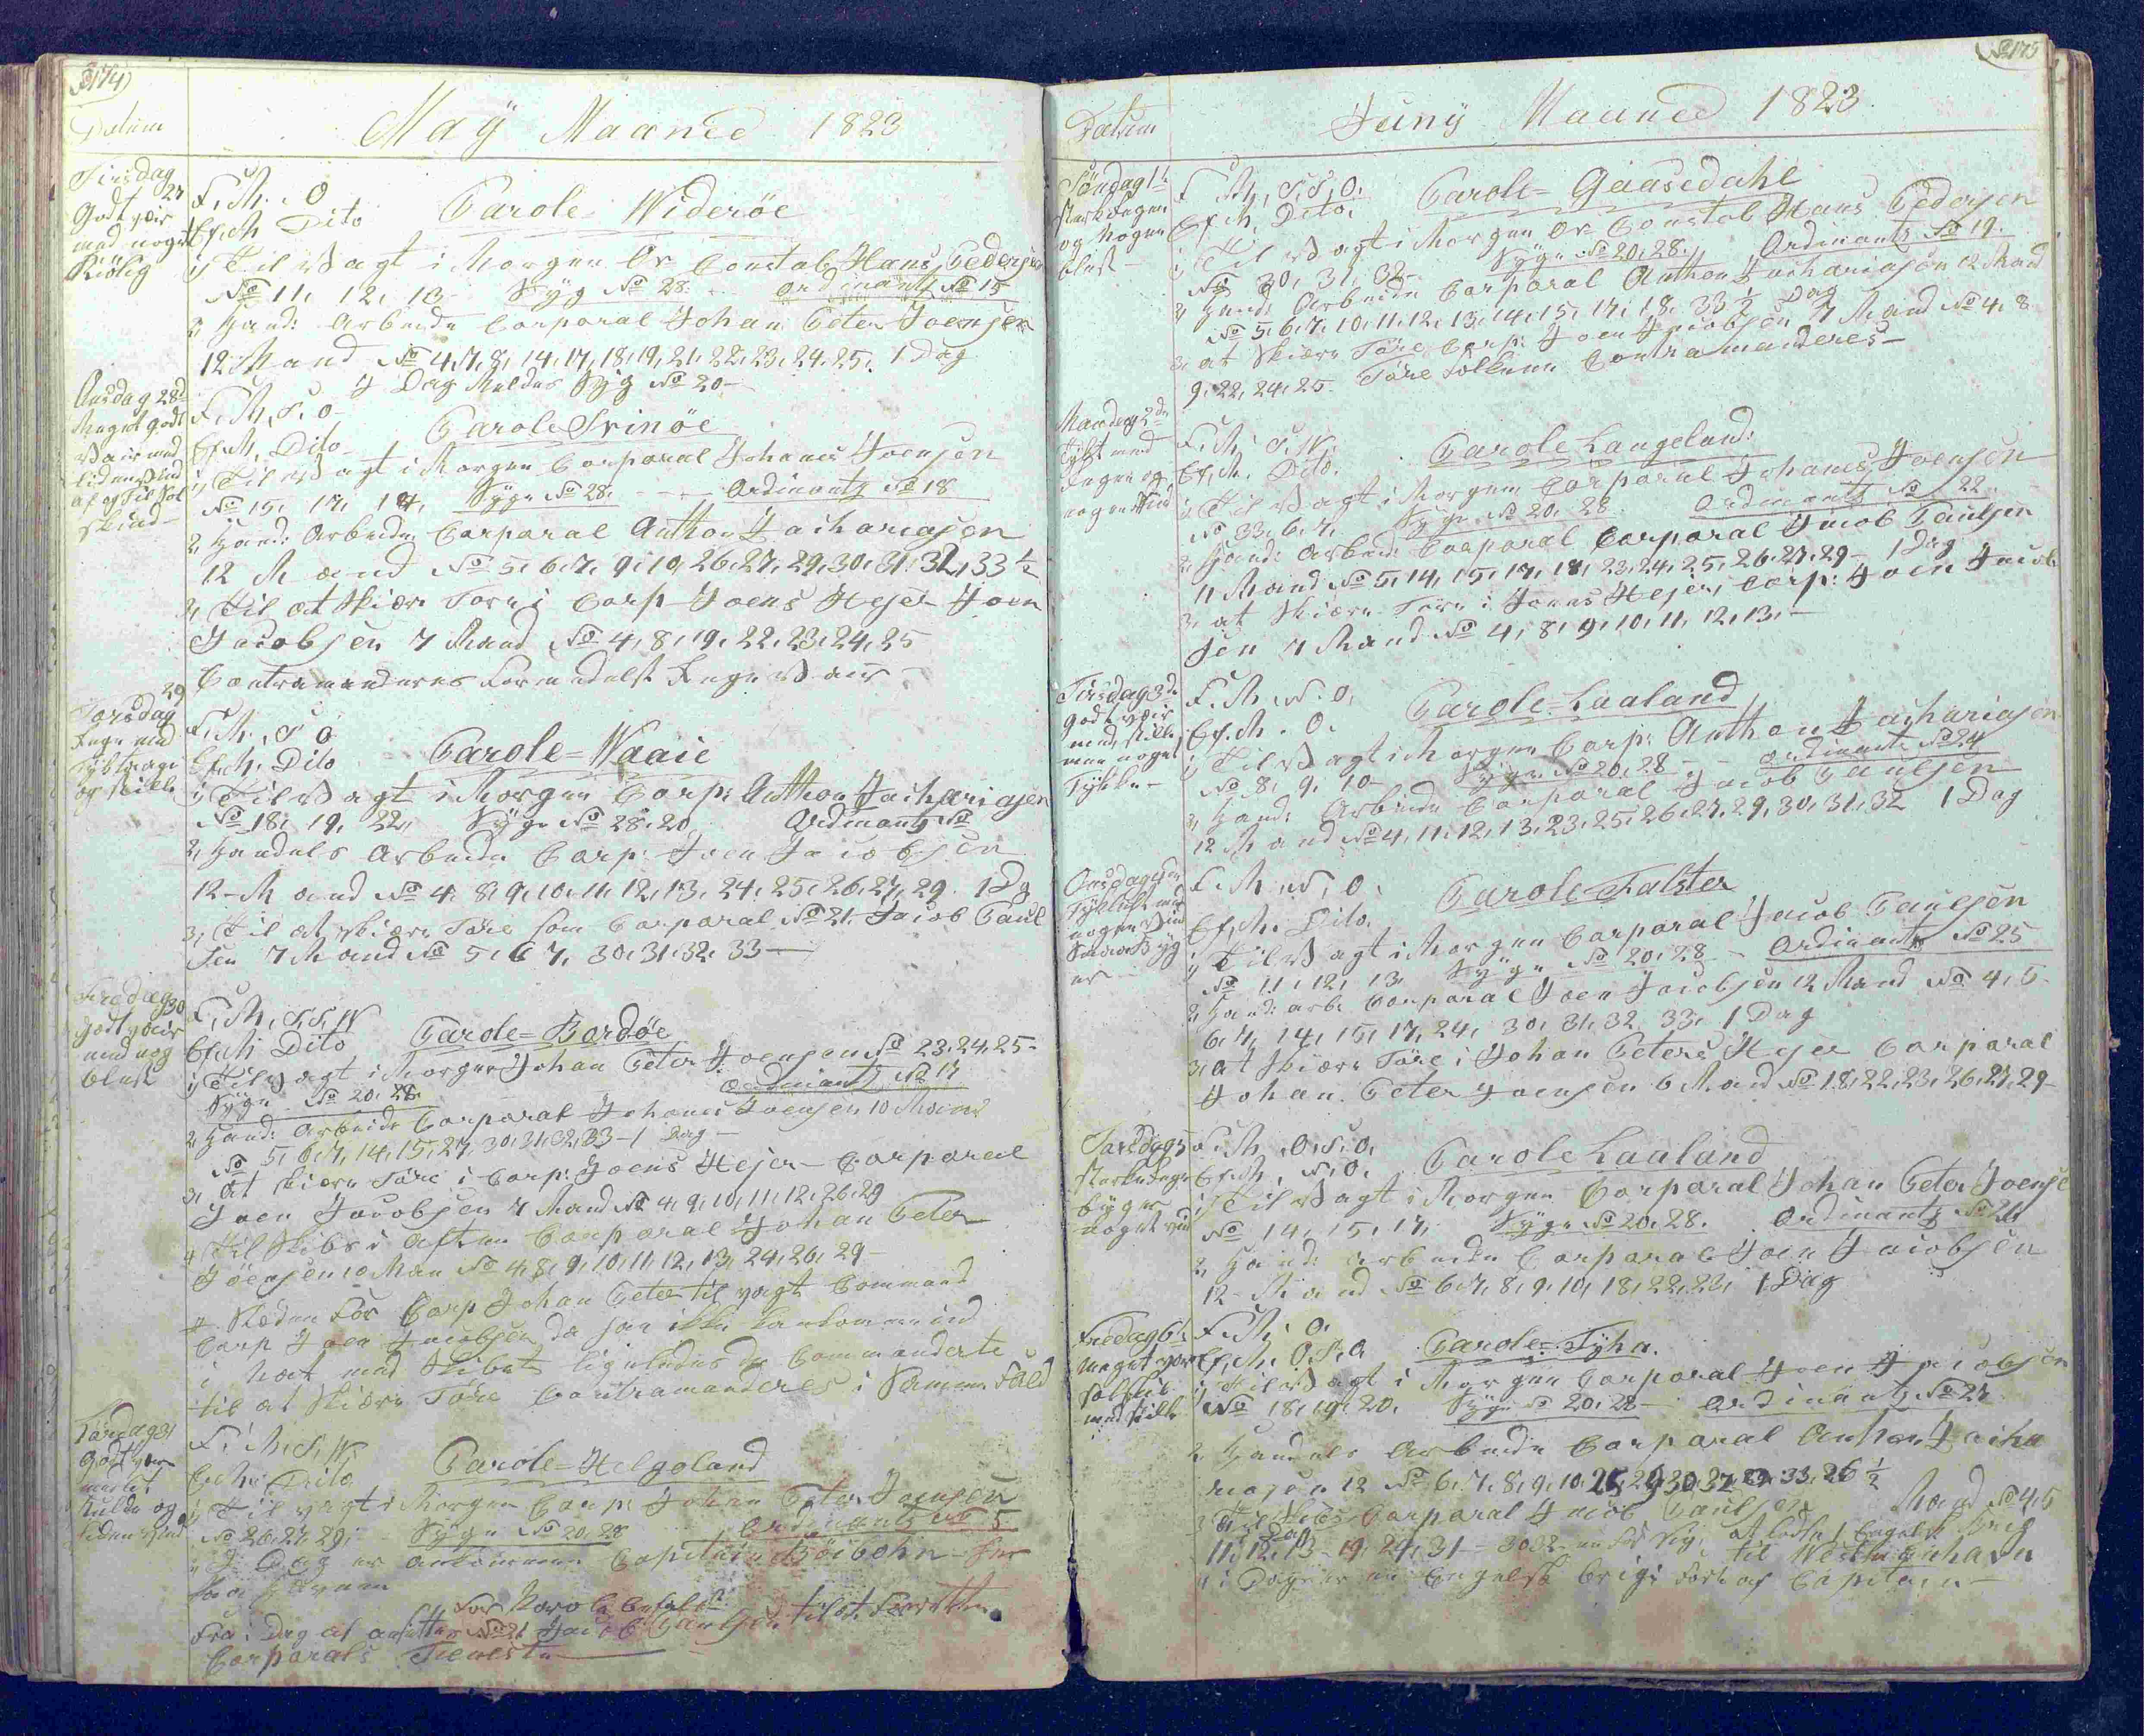 174
Datum
May Maaned 1823
Tirsdag
27
Godt veir
med noget
Kiølig
F. M. O
Ef.M. Dito
Parole Widerøe
1, Til Vagt i Morgen Or Constab Hans Pedersen
No 11, 12, 13 Syg No 28. Ordinants No 15
2, Hand: Arbeide Corporal Johan Peter Joensen
12 Mand No 4, 7, 8, 14, 17, 18, 19, 21, 22, 23, 24, 25, 1 Dag
I Dag Meldes Syg No 20
Onsdag 28
Meget godt
Vair med
liden Vind
af og til Sol
skind
F. M. S. O
Ef.M. Dito
Parole Svinöe
1, Til Vagt i Morgen Corporal Johanes Joensen
No 15, 17, 14, Syge No 28. Ordinants No 18
2, Hand: Arbeide Corporal Anthon Zachariasen
12 Mand No 5, 6, 7, 9, 10, 26, 27, 29, 30, 31, 32, 33 ½
3, Til at skiære Torv i Corp Joens Hejer Joen
Jacobsen 7 Mand No 4, 8, 19, 22, 23, 24, 25
Contramanderes formedelst Regn Vair
29
Torsdag
Regn med
Tyk
og stille
F. M. S O
Ef.M. Dito
Parole = Waaie
1, Til Vagt i Morgen Corp: Anthon Zachariasen
No 18, 19, 22, Syge No 28, 20 Ordinants No
2, Handels Arbeide Corp: Joen Jacobsen
12 - Mand No 4, 8, 9, 10, 11, 12, 13, 24, 25, 26, 27, 29. 1 Dg
3, Til at skiære Töre som Corporal No 21. Jacob Paul
sen 7 Mand No 5, 6, 7, 30, 31, 32, 33
Fredag
30
godt vair
med nog
blæst
F. M. S. S. W
Ef.M. Dito
Parole = Bordöe
1, Til Vagt i Morgen Johan Peter Joensen No 23, 24, 25
Syge No 20, 28. Ordinants No 17
2, Hand: Arbeide Corporal Johanes Joensen 10 Mand
No 5, 6, 7, 14, 15, 27, 30, 31, 32, 33 - 1 Dag
3, At skiære Töre i Corp: Joens Hejer - Corporal
Joen Jacobsen 7 Mand No 4, 9, 10, 11, 12, 26, 29
4, Til Skibs i Aften Corporal Johan Peter
Joensen 10 Man No 4, 8, 9, 10, 11, 12, 13, 24, 26, 29
Steden for Corp Johan Peter til vagt Command
Corp Joen Jacobsen da han ikke kan komme ind
i Nat med Skibet ligeledes de Commanderte
til at skiære Töre Contramanderes i Samme Fald
Löverdag 31
Godt veir
Kulde og
liden Vind
F. M. S. W
Ef.M. Dito
Parole = Helgoland
1, Til vagt i Morgen Corp: Johan Peter Joensen
No 26, 27, 29, Syge No 20, 28 Ordinants No 5
I Dag er ankommen Capitain
paa Havnen
For Parole Befaled:
Fra i Dag af ansættes No 21 Jacob Paulsen til at forrette
Corporals Tieneste
175
Datum
Juny Maaned 1823
Söndag 1te
stærk Regen
og Nogen
blæst
F. M. S. S. O.
Ef.M. Dito.
Parole = Gaasedahl
1, Til Vagt i Morgen Or Constab Hans Pedersen
No 30, 31, 32 Syge No 20, 28. Ordinants No 19.
2, Hand: Arbeide Corporal Anthon Zachariasen 12 Mand
No 5, 6, 7, 10, 11, 12, 13, 14, 15, 17, 18, 33 ½ Dag
3, at skiære Töre Corp: Joen Jacobsen 7 Mand No 4, 8
9, 22, 24, 25 Töre Folkene Contramanderes
Mandag 2den
Tykt med
Regen og
nogen Vind
F. M. S. W.
Ef.M. Dito.
Parole Langeland:
1, Til Vagt i Morgen Corporal Johanes Joensen
No 33, 6, 7, Syge No 20, 28 Ordinants No 22
2, Hand: Arbeid: Corporal Corporal Jacob Paulsen
11 Mand No 5, 14, 15, 17, 18, 23, 24, 25, 26, 27, 29 - 1 Dag
3, at skiære Törv i Joens Hejer, Corp: Joen Jacob
sen 7 Mand No 4, 8, 9, 10, 11, 12, 13,
Tirsdag 3de
godt vair
med stille
men noget
Tykke
F. M. N. O,
Ef.M. O.
Parole = Laaland
1, Til Vagt i Morgen Corp: Anthon Zachariasen
No 8, 9, 10 Syge No 20, 28 - Ordinants No 24
2, Hand: Arbeide Corporal Jacob Paulsen
12 Mand No 4, 11, 12, 13, 23, 25, 26, 27, 29, 30, 31, 32 1 Dag
Onsdag 4
Tykluft med
nogen Vind
F. M. N. O.
Ef.M. Dito.
Parole Falster
1, Til Vagt i Morgen Corporal Jacob Paulsen
No 11, 12, 13 Syge No 20, 28 - Ordinants No 25
2, Hand: arb: Corporal Joen Jacobsen 12 Mand No 4, 5
6, 7, 14, 15, 17, 24, 30, 31, 32, 33, 1 Dag
3, at skiære Töre i Johan Peters Hejer Corporal
Johan Peter Joensen 6 Mand No 18, 22, 23, 26, 27, 29
Torsdag 5
stærke Regn
byger
noget vind
F. M. O. S. O,
Ef.M. S. O.
Parole Laaland
1, Til Vagt i Morgen Corporal Johan Peter Joense
No 14, 15, 17, Syge No 20, 28. Ordinants No 26
2, Hand: arbeide Corporal Joen Jacobsen
12 - Mand No 6, 7, 8, 9, 10, 18, 22, 23, 1 Dag
Fredag 6te
meget
Solskin
med stille
F. M. O.
Ef.M. O. S. O.
Parole = Fyhn.
1, Til Vagt i Morgen Corporal Joen Jacobsen
No 18, 19, 20, Syge No 20, 28 - Ordinants No 27
2, Handels Arbeide Corporal Anthon Zacha
riasen 12 No 6, 7, 8, 9, 10, 25, 29, 30, 32, 33, 26 ½
3, Til Skibs Corporal Jacob Paulsen Mand No 4, 5
11, 12, 13 - 19, 24, 31 - 30, 32 at lodse 1 Engelsk brig
til Westmanhavn
4, i Dag er en Engelsk brig fört af Capitain